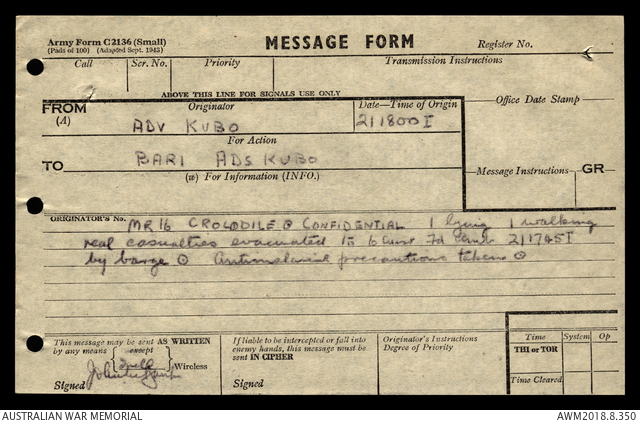 Army Form C2136 (Small)
(Pads of 100) (Adapted Sept. 1943)
MESSAGE FORM
Register No.
Call Ser. No. Priority Transmission Instructions
ABOVE THIS LINE FOR SIGNALS USE ONLY
FROM Originator Date—Time of Origin Office Date Stamp
(A) ADV KUBO 211800I
For Action
TO BARI ADS KUBO
(w) For Information (INFO.) Message Instructions GR
ORIGINATOR'S No. MR16 CROCODILE CONFIDENTIAL 1 lying 1 walking
real casualties evacuated to 6 Aust Fd Amb 211745I
by barge Antimalarial precautions taken
This message may be sent AS WRITTEN
by any means except Wireless
Signed
If liable to be intercepted or fall into
enemy hands, this message must be
sent IN CIPHER
Signed
Originator's Instructions
Degree of Priority
Time System Op
THI or TOR
Time Cleared
AUSTRALIAN WAR MEMORIAL AWM2018.8.350